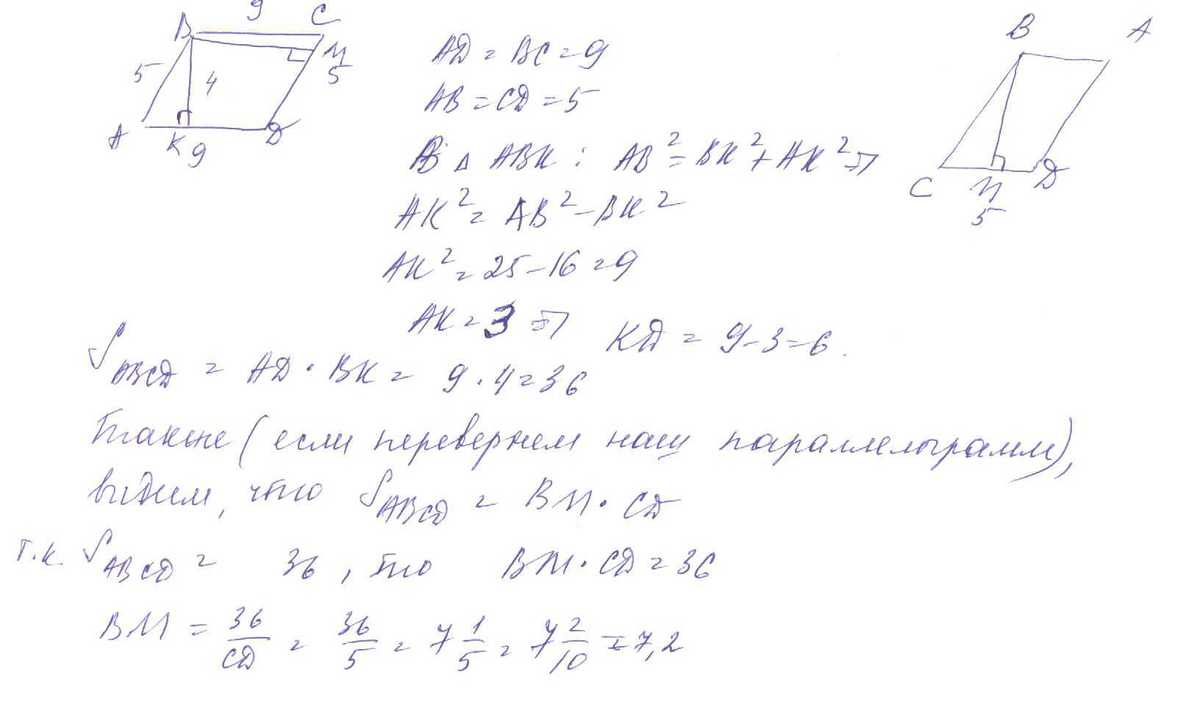 9
B C
5 4 M 5
A K 9 D
AD = BC = 9
AB = CD = 5
В △ ABK : AB² = BK² + AK² ⇒
AK² = AB² − BK²
AK² = 25 − 16 = 9
AK = 3 ⇒ KD = 9 − 3 = 6.
B A
C M D
5
S ABCD = AD · BK = 9 · 4 = 36
Также (если перевернем наш параллелограмм),
видим, что S ABCD = BM · CD
т.к. S ABCD = 36, то BM · CD = 36
BM = 36/CD = 36/5 = 7 1/5 = 7 2/10 = 7,2